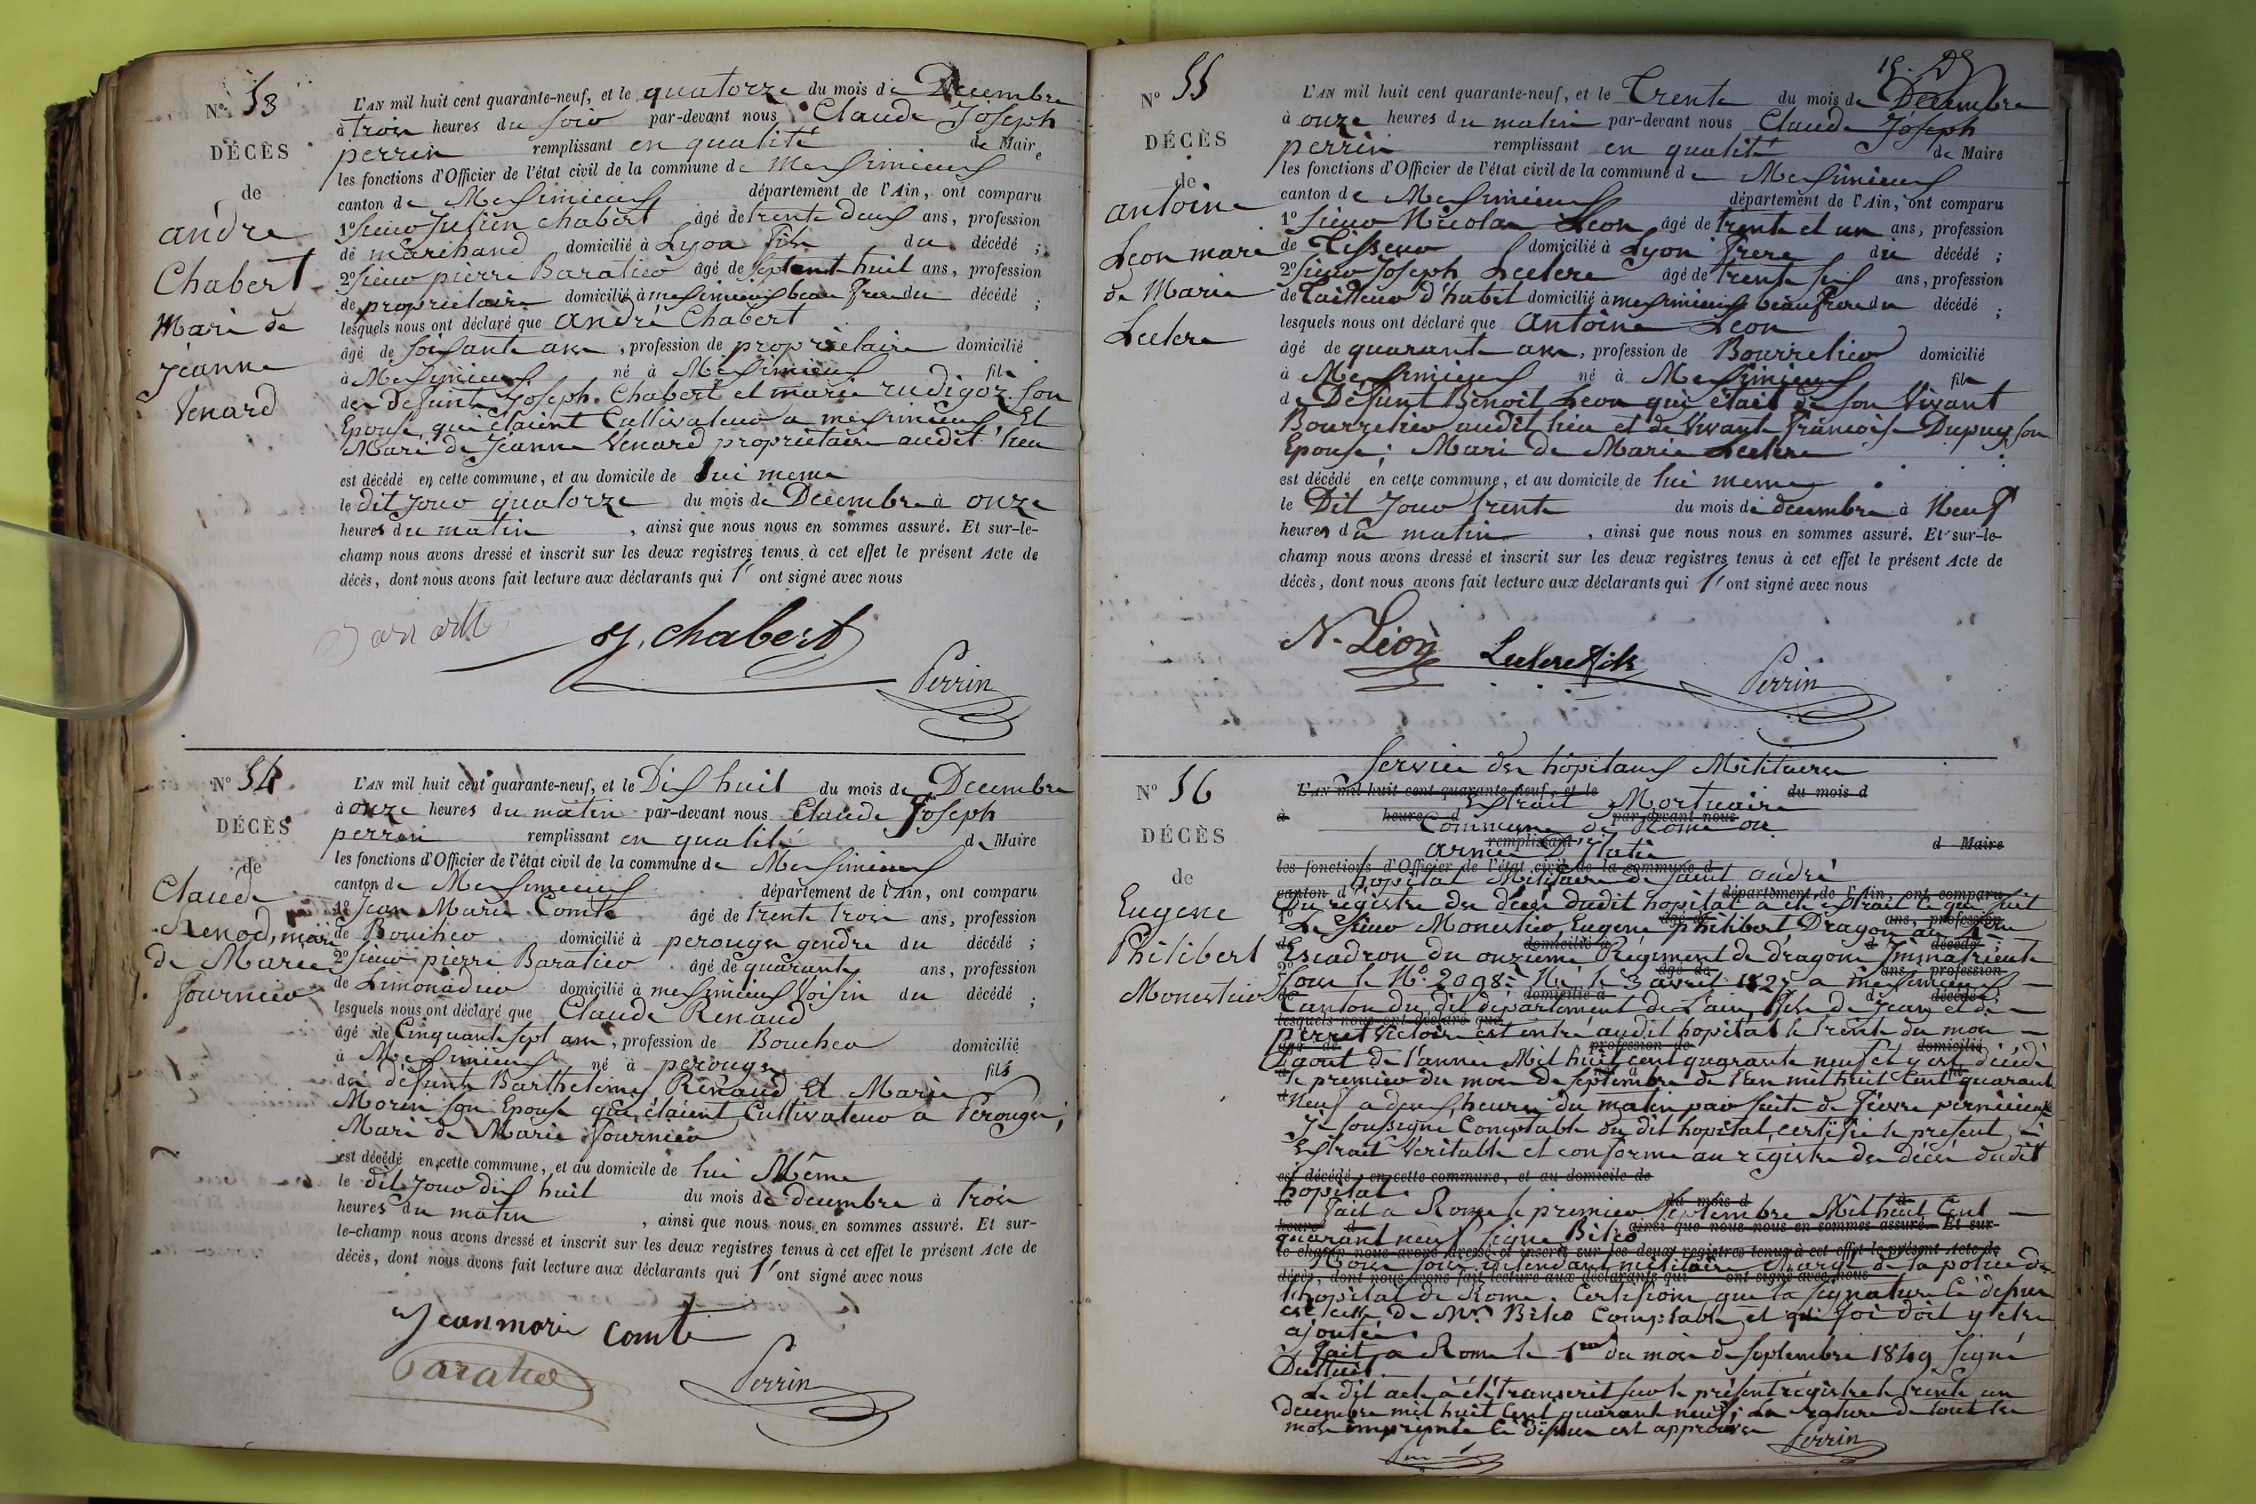 N° 53
DÉCÈS
de
andré
Chabert
Mari de
jeanne
Venard
L'AN mil huit cent quarante-neuf, et le quatorze du mois de Decembre
à trois heures du soir par-devant nous Claude Joseph
perrin remplissant en qualité de Maire
les fonctions d'Officier de l'état civil de la commune de Meximieux
canton de Meximieux département de l'Ain, ont comparu
1° Sieur Julien Chabert âgé de trente deux ans, profession
de marchand domicilié à Lyon fils du décédé ;
2° Sieur pierre Baratier âgé de septent huit ans, profession
de proprietaire domicilié à meximieux beau frere du décédé ;
lesquels nous ont déclaré que andré Chabert
âgé de soixante ans, profession de propriétaire domicilié
à Meximieux né à Meximieux fils
des defunts Joseph Chabert et marie rudigoz son
Epouse qui étaient Cultivateur a meximieux Et
Mari de Jeanne Venard propriétaire audit lieu
est décédé en cette commune, et au domicile de lui meme
le dit jour quatorze du mois de Decembre à onze
heures du matin, ainsi que nous nous en sommes assuré. Et sur-le-
champ nous avons dressé et inscrit sur les deux registres tenus à cet effet le présent Acte de
décès, dont nous avons fait lecture aux déclarants qui l'ont signé avec nous
J. Chabert
Perrin
N° 54
DÉCÈS
de
Claude
Renod, mari
de Marie
fournier
L'AN mil huit cent quarante-neuf, et le Dix huit du mois de Decembre
à onze heures du matin par-devant nous Claude Joseph
perrin remplissant en qualité de Maire
les fonctions d'Officier de l'état civil de la commune de Meximieux
canton de Meximieux département de l'Ain, ont comparu
1° Jean Marie Comte âgé de trente trois ans, profession
de Boucher domicilié à perouges gendre du décédé ;
2° Sieur pierre Baratier âgé de quarante ans, profession
de Limonadier domicilié à meximieux Voisin du décédé ;
lesquels nous ont déclaré que Claude Renaud
âgé de Cinquante sept ans, profession de Boucher domicilié
à Meximieux né à perouges fils
des défunts Barthelemy Renaud Et Marie
Morin son Epouse qui étaient Cultivateur a Perouges ;
Mari de Marie fournier
est décédé en cette commune, et au domicile de lui Même
le dit jour dix huit du mois de decembre à trois
heures du matin, ainsi que nous nous en sommes assuré. Et sur-
le-champ nous avons dressé et inscrit sur les deux registres tenus à cet effet le présent Acte de
décès, dont nous avons fait lecture aux déclarants qui l'ont signé avec nous
Jean marie comte
Baratier
Perrin
N° 55
DÉCÈS
de
antoine
Leon mari
de Marie
Leclere
L'AN mil huit cent quarante-neuf, et le Trente du mois de Decembre
à onze heures du matin par-devant nous Claude Joseph
perrin remplissant en qualité de Maire
les fonctions d'Officier de l'état civil de la commune de Meximieux
canton de Meximieux département de l'Ain, ont comparu
1° Sieur Nicolas Leon âgé de trente et un ans, profession
de Tisseur domicilié à Lyon frere du décédé ;
2° Sieur Joseph Leclere âgé de trente six ans, profession
de Tailleur d'habit domicilié à meximieux beau frere du décédé ;
lesquels nous ont déclaré que antoine Leon
âgé de quarante ans, profession de Bourrelier domicilié
à Meximieux né à Meximieux fils
de Défunt Benoit Leon qui était de son Vivant
Bourrelier audit lieu et de Vivante francoise Dupuy son
Epouse ; Mari de Marie Leclere
est décédé en cette commune, et au domicile de lui meme
le Dit Jour trente du mois de decembre à Neuf
heures du matin, ainsi que nous nous en sommes assuré. Et sur-le-
champ nous avons dressé et inscrit sur les deux registres tenus à cet effet le présent Acte de
décès, dont nous avons fait lecture aux déclarants qui l'ont signé avec nous
N. Léon
Perrin
N° 56
DÉCÈS
de
Eugene
Philibert
Monestier
Service des hôpitaux Militaires
L'AN mil huit cent quarante-neuf, et le du mois d
Extrait Mortuaire
à heure d par-devant nous
Commune de Rome ou
remplissant d Maire
armée d'Italie
les fonctions d'Officier de l'état civil de la commune d
hopital Militaire de saint andré
canton d département de l'Ain, ont comparu
Du régistre des décès dudit hopital a été extrait ce qui suit
1° âgé de ans, profession
Le Sieur Monestier, Eugene philibert Dragon au
de domicilié à d décédé ;
Escadron du onzieme Régiment de dragons Immatricule
2° âgé de ans, profession
sous le N° 2098. Né le 3 avril 1827 a meximieux
de domicilié à d décédé ;
Canton du dit département de L'ain, fils de Jean et de
lesquels nous ont déclaré que
perret Victoire est entré audit hopital le trente du mois
âgé de profession de domicilié
d'aout de l'annee Mil huit cent quarante neuf et y est décédé
le premier du mois de septembre de l'an mil huit cent quarante
Neuf a deux heures du matin par suite de fievre pernicieuse
Je soussigné Comptable du dit hopital, certifie le present
Extrait Veritable et conforme au régistre des décès dudit
est décédé en cette commune, et au domicile de
hopital.
du mois d
fait a Rome le premier septembre Mil huit Cent
heure d ainsi que nous nous en sommes assuré. Et sur-
quarant neuf signé
le-champ nous avons dressé et inscrit sur les deux registres tenus à cet effet le présent Acte de
Nous sous intendant militaire chargé de la police de
décès, dont nous avons fait lecture aux déclarants qui ont signé avec nous
l'hopital de Rome. Certifions que la signature ci dessus
est celle de Mr. Comptable et que foi doit y etre
ajoutée
fait a Rome le 1er du mois de septembre 1849 signé
Le dit acte a été transcrit sur le présent régistre le trente un
decembre mil huit cent quarante neuf ; La rature de tout les
mots imprimés ci dessus est approuvée
Perrin